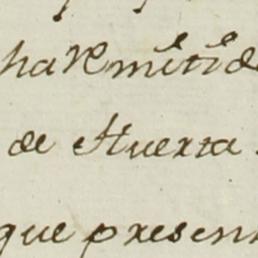 ha Remitido
de Huerta
que presen